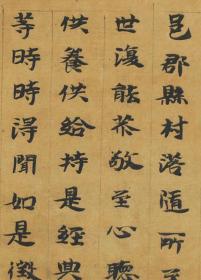 邑郡縣村落随所至
世復能恭敬至心聽
供養供給持是經典
等時時得聞如是微